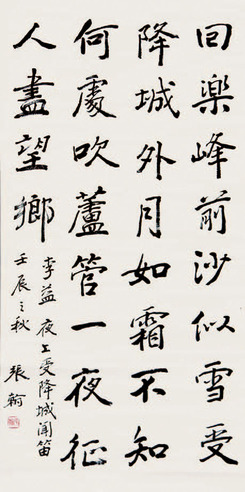 回樂峰前沙似雪受
降城外月如霜不知
何處吹蘆管一夜征
人盡望鄉
李益 夜上受降城闻笛
壬辰之秋 張翰